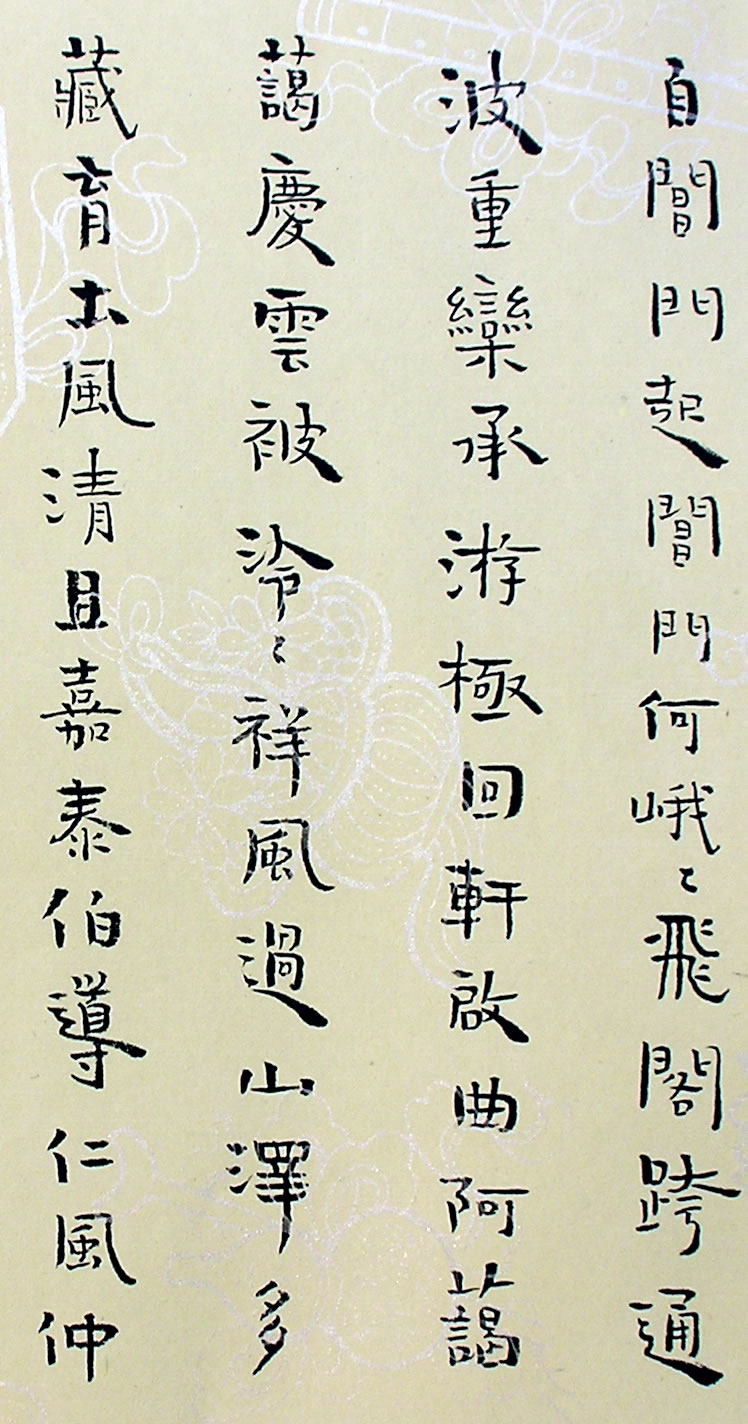 自閶門起閶門何峨〻飛閣跨通
波重欒承游極回軒啟曲阿藹
藹慶雲被泠〻祥風過山澤多
藏育土風清且嘉泰伯導仁風仲